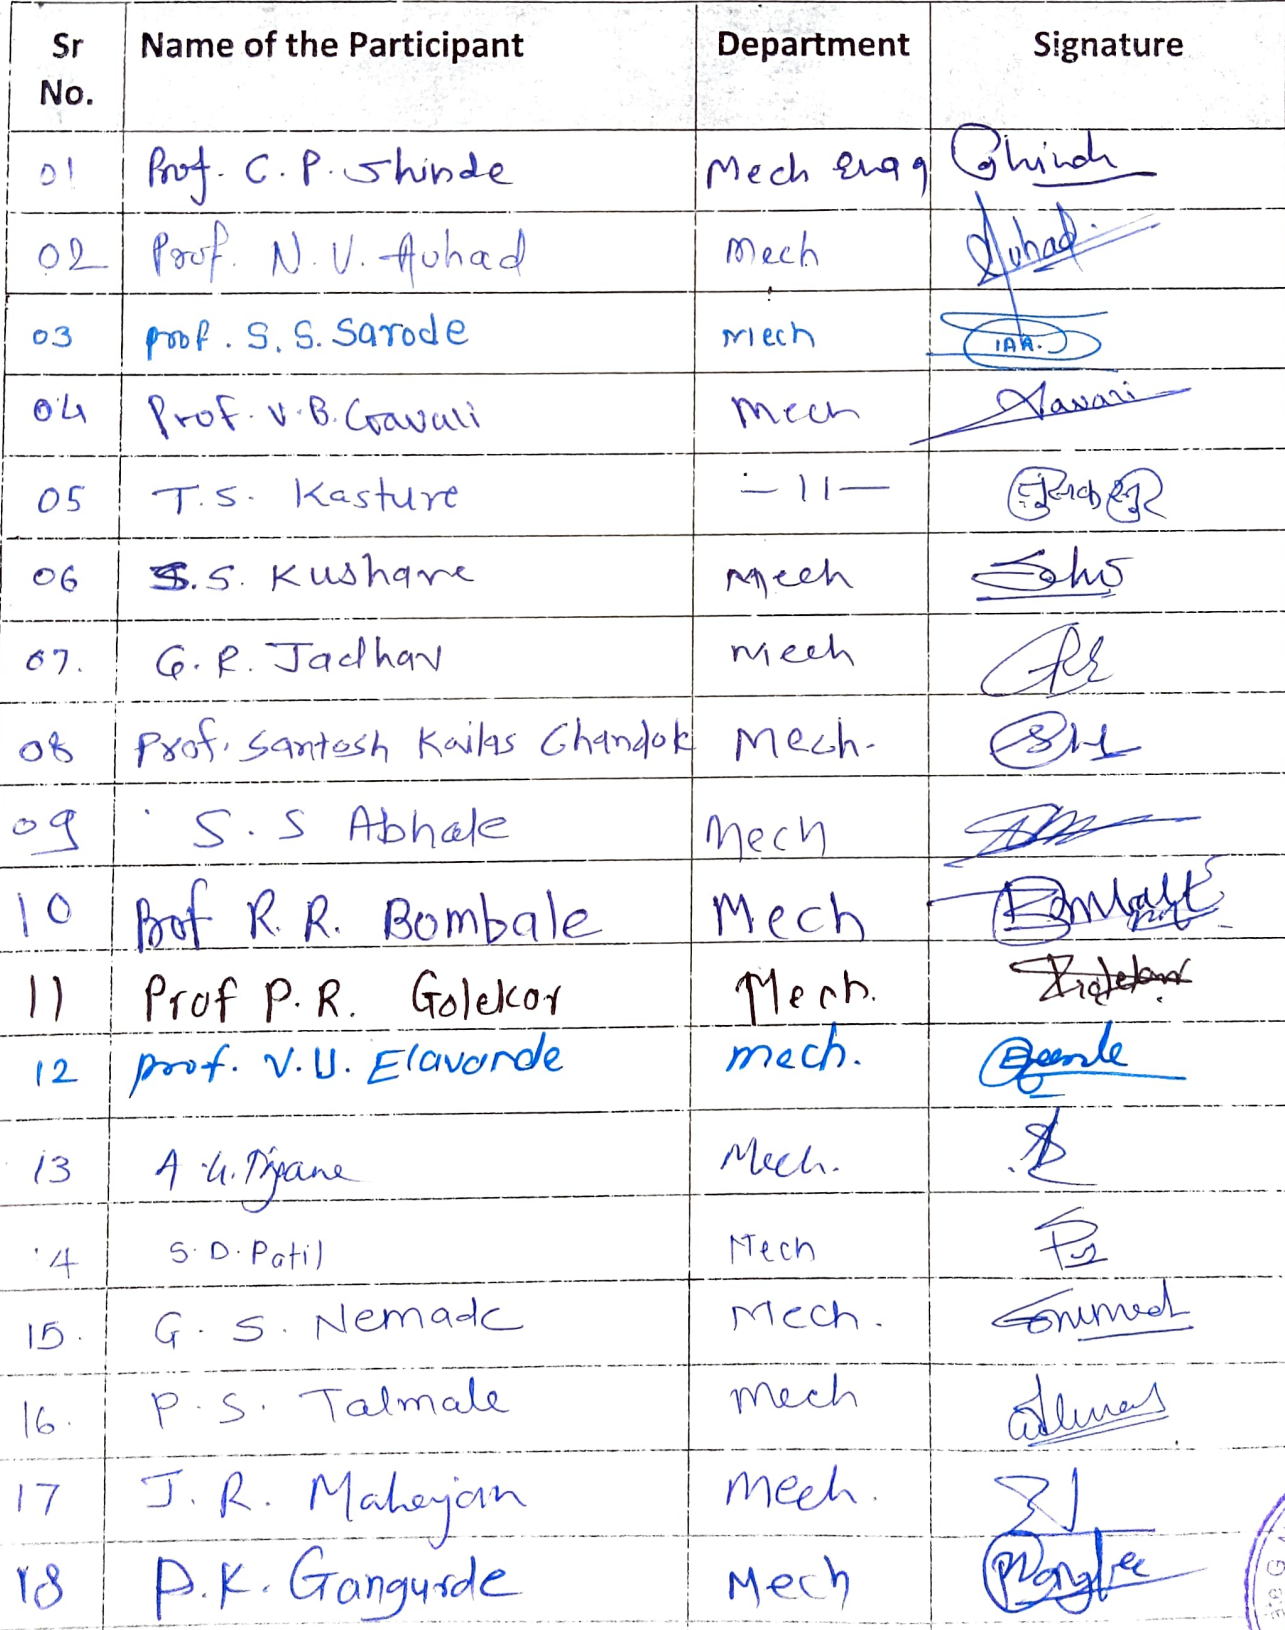 Sr No. Name of the Participant Department Signature
01 Prof. C. P. Shinde Mech Engg
02 Prof. N. V. Auhad Mech Auhad
03 prof. S. S. Sarode Mech
04 Prof. V. B. Gavali Mech
05 T. S. Kasture —11—
06 S. S. Kushare Mech
07. G. R. Jadhav Mech
08 Prof. Santosh Kailas Chandok Mech.
09 S. S Abhale Mech
10 Prof R. R. Bombale Mech
11 Prof P. R. Golekar Mech.
12 prof. V. U. Elavarde mech.
13 A Mech.
14 S. D. Patil Mech
15. G. S. Nemade Mech.
16. P. S. Talmale Mech
17 J. R. Mahajan Mech.
18 P. K. Gangurde Mech